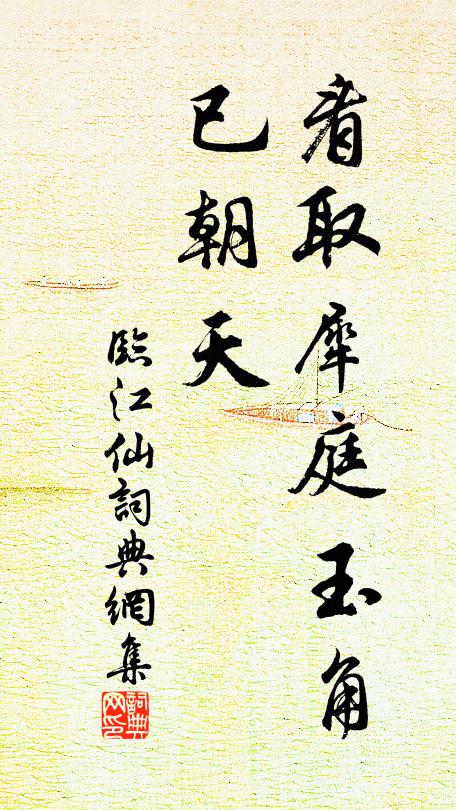 看取犀庭玉角
已朝天
臨江仙詞典網集
詞典
网印